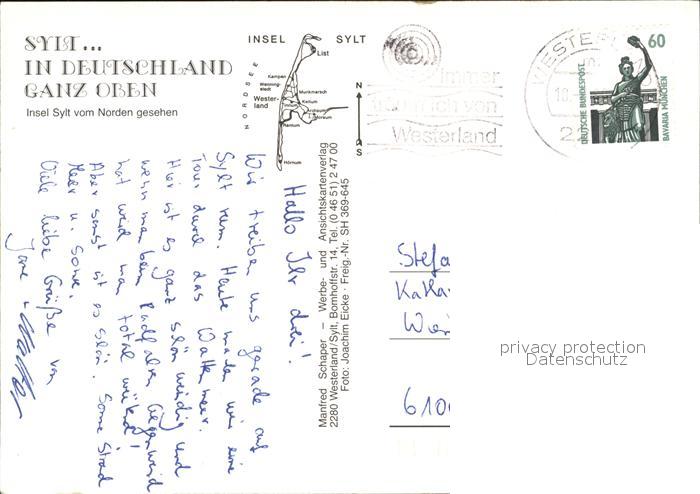 SYLT...
IN DEUTSCHLAND
GANZ OBEN
Insel Sylt vom Norden gesehen
INSEL SYLT
NORDSEE
List
Kampen
Wenning-
stedt
Munkmarsch
Wester-
land
Keitum
Archsum
Morsum
Rantum
Hörnum
N
S
Immer
von
Westerland
DEUTSCHE BUNDESPOST
60
BAVARIA MÜNCHEN
Manfred Schaper – Werbe- und Ansichtskartenverlag
2280 Westerland/Sylt, Bomhoffstr. 14, Tel. (0 46 51) 2 47 00
Foto: Joachim Eicke · Freig.-Nr. SH 369-645
Hallo Ihr drei!
Wir treiben uns gerade auf
Sylt rum. Heute machen wir eine
Tour durch das Wattenmeer.
Hier ist es ganz schön windig und
wenn man beim Radfahren Gegenwind
hat wird man total wütend!
Aber sonst ist es schön. Sonne Strand
Meer u. Sonne.
Viele liebe Grüße von
Stefa
Katha
610
privacy protection
Datenschutz